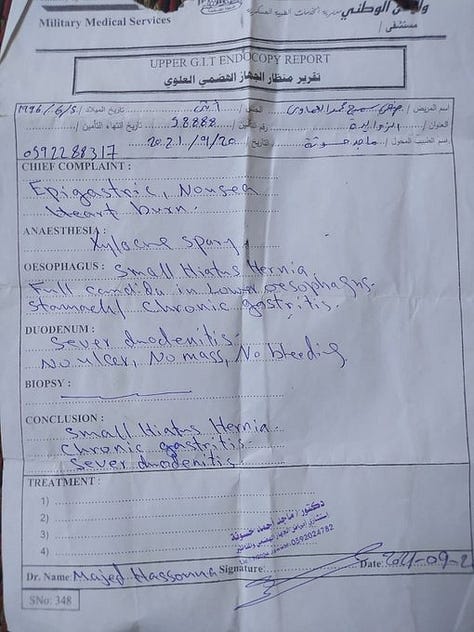 Military Medical Services
مستشفى /
UPPER G.I.T ENDOCOPY REPORT
تقرير منظار الجهاز الهضمي العلوي
اسم المريض / الجنس / أنثى تاريخ الميلاد / 1996/6/5
العنوان / الزوايدة رقم التأمين / 58888 تاريخ انتهاء التأمين /
اسم الطبيب المحول / ماجد حسونة التاريخ / 2021/9/20 0592288317
CHIEF COMPLAINT :
Epigastric, Nousea
Heart burn.
ANAESTHESIA :
Xylocne spary
OESOPHAGUS : Small Hiatus Hernia
Full candida in lower oesophagus.
Stomach/ chronic gastritis.
DUODENUM :
Sever duodenitis.
No ulcer, No mass, No bleeding
BIOPSY :
CONCLUSION :
Small Hiatus Hernia.
chronic gastritis.
Sever duodenitis.
TREATMENT :
1)
2)
3)
4)
دكتور / ماجد أحمد حسونة
0592024782
Dr. Name: Majed Hassonna Signature: Date: 2021-09-2
SNo: 348